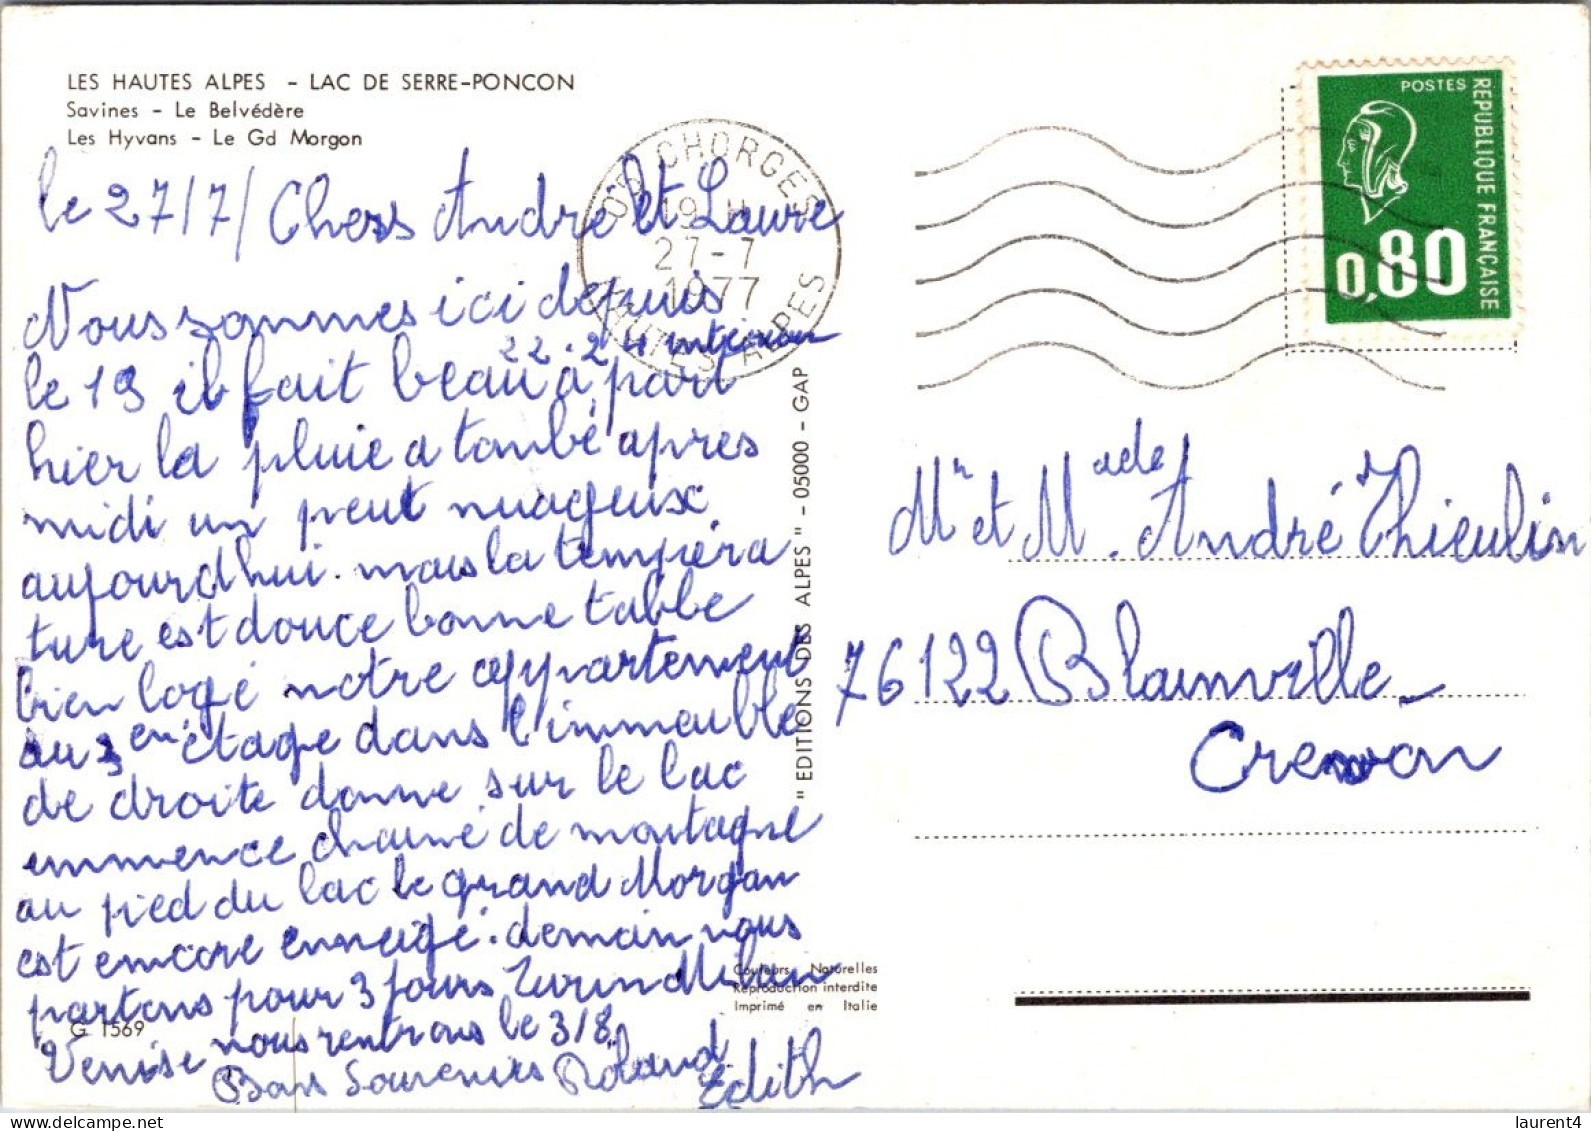 LES HAUTES ALPES - LAC DE SERRE-PONCON
Savines - Le Belvédère
Les Hyvans - Le Gd Morgon
le 27/7/ Chers André et Laure
Nous sommes ici depuis
le 19 il fait beau 22.24 intérieur à part
hier la pluie a tombé apres
midi un peut nuageux
aujourdhui. mais la tempéra
ture est douce bonne table
bien logé notre appartement
au 3 em étage dans l'immeuble
de droite donne sur le lac
immence chaine de montagne
au pied du lac le grand Morgan
est encore enneigé. demain nous
partons pour 3 jours Turin Milan
Venise nous rentrons le 3/8
Bons Souvenirs Roland
Edith
G 1569
05 CHORGES
19 H
27-7
1977
HAUTES ALPES
" EDITIONS DES ALPES " - 05000 - GAP
Couleurs Naturelles
Reproduction interdite
Imprimé en Italie
POSTES
REPUBLIQUE FRANÇAISE
0,80
Mr et Made. André Thieulin
76122 Blainville-
Crevon
laurent4